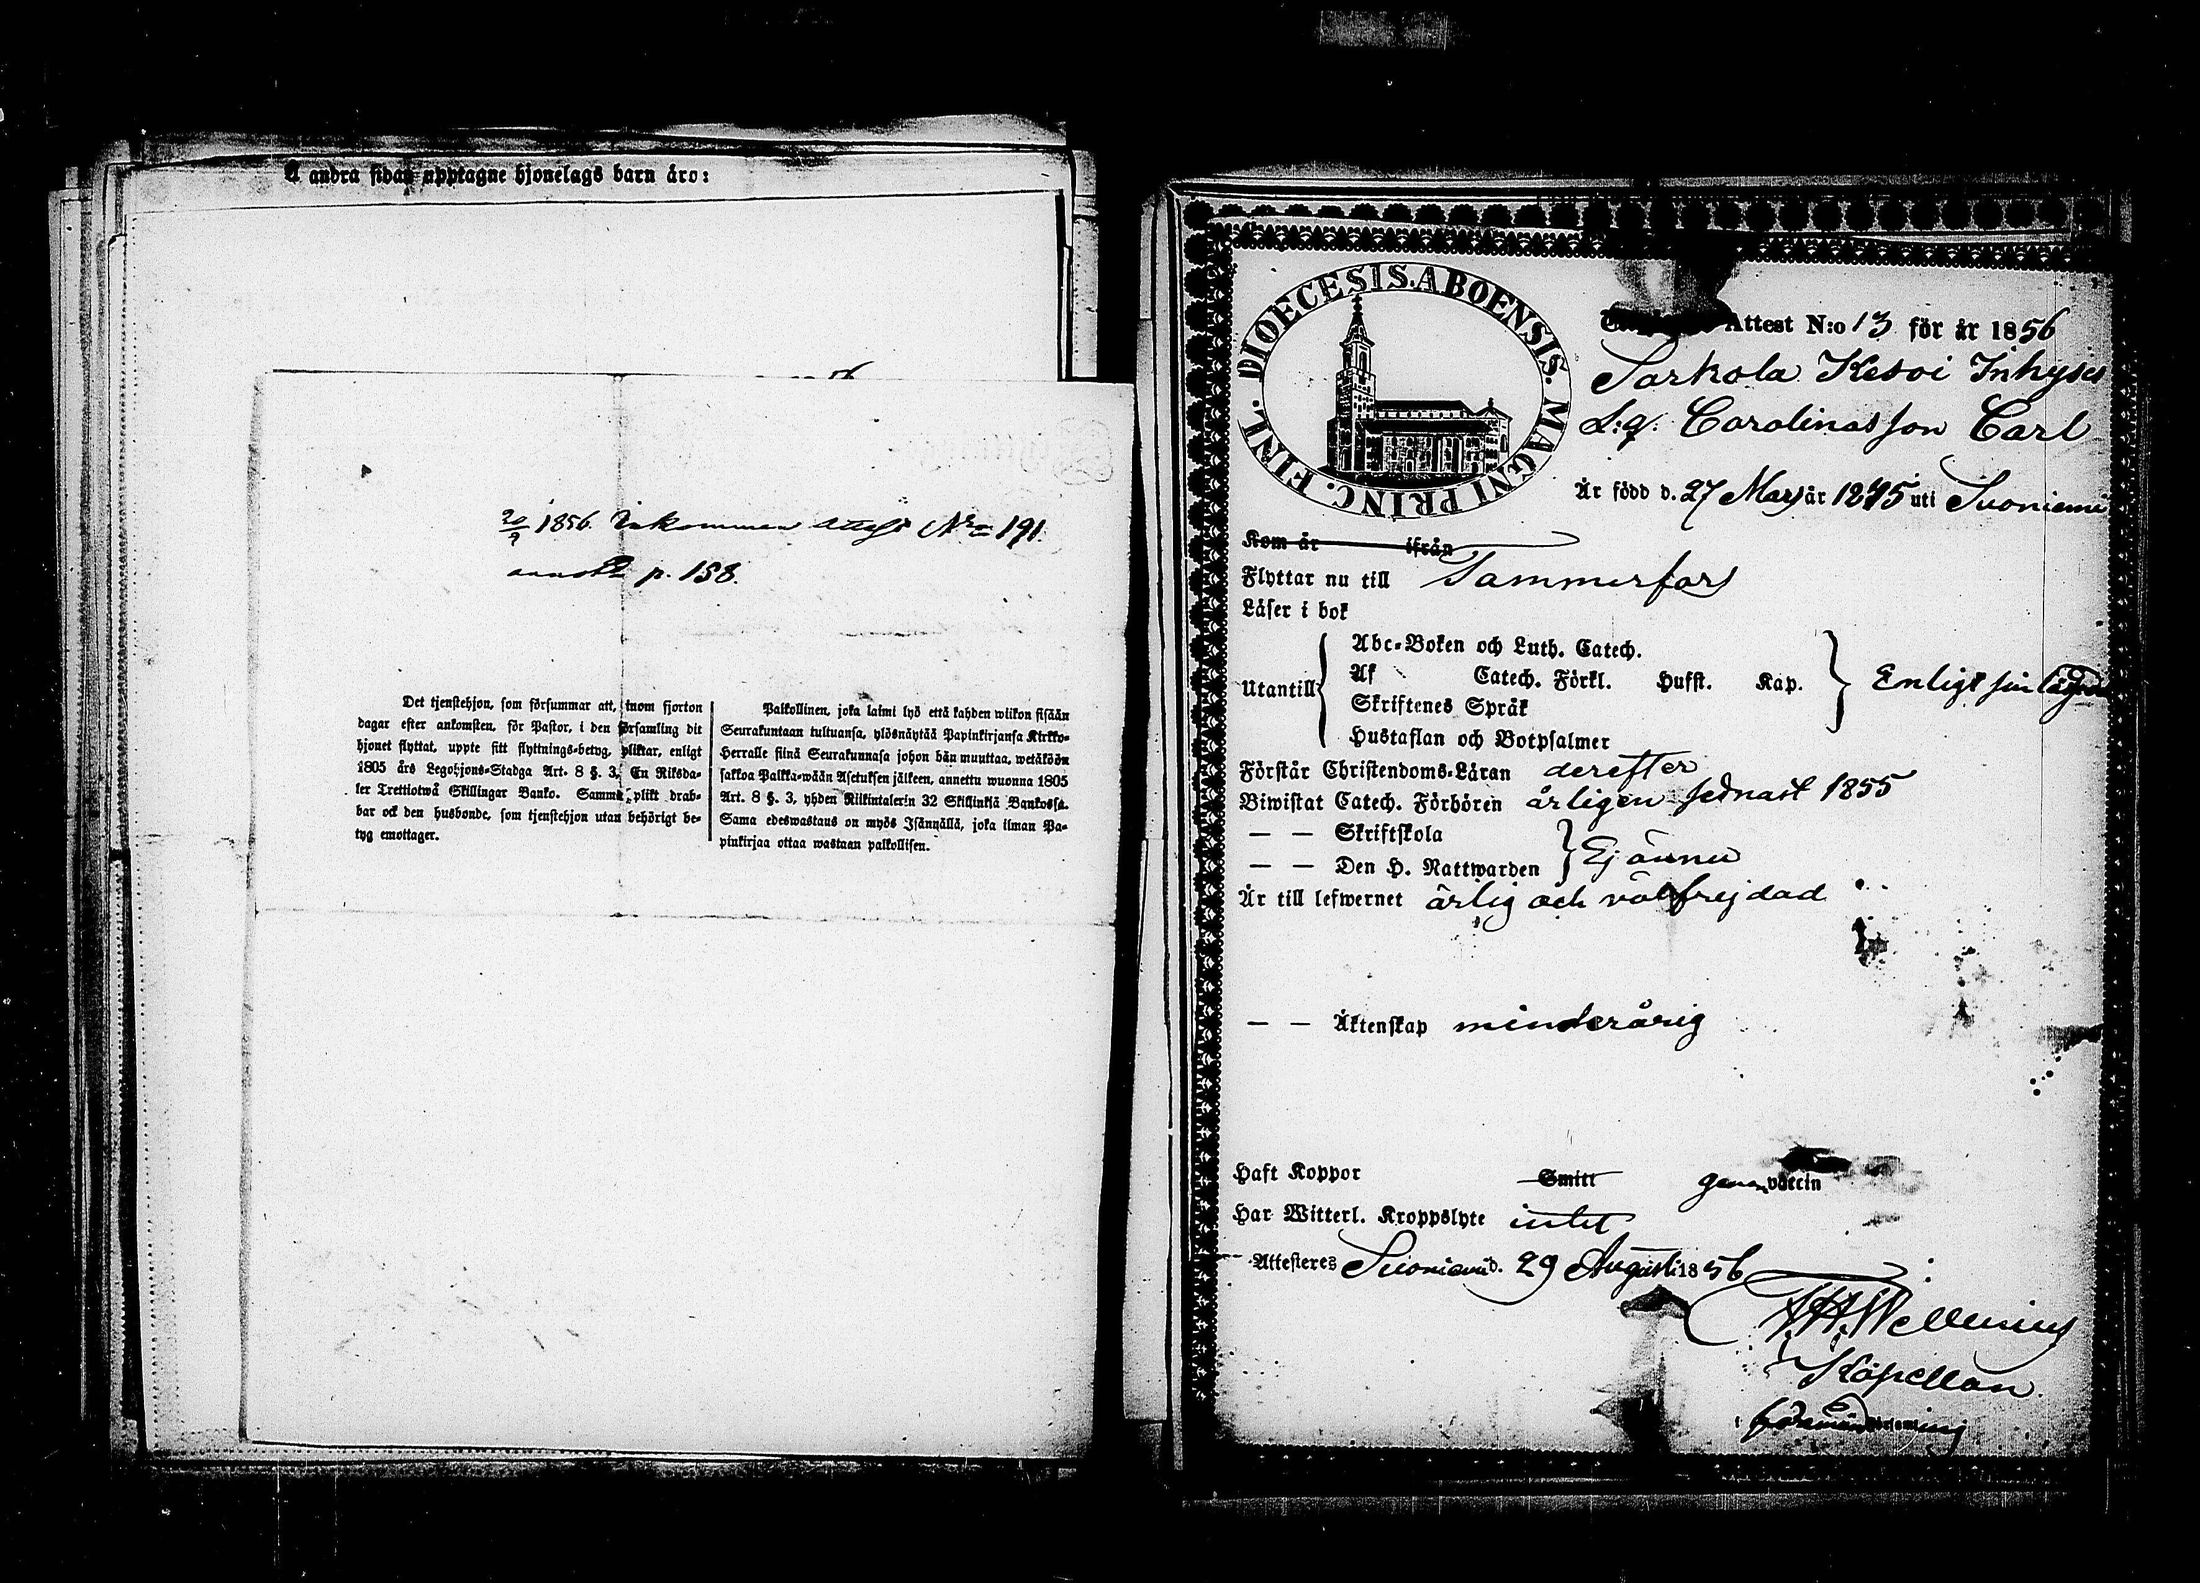 Å andra sidan upptagne hjonelags barn äro:
56
20/9 1856. Inkommen attest No 191.
annot p. 158.
Det tjenstehjon, som försummar att, inom fjorton
dagar efter ankomsten, för Pastor, i den församling dit
hjonet flyttat, uppte sitt flyttnings-betyg, pliktar, enligt
1805 års Legohjons-Stadga Art. 8 §. 3, En Riksda-
ler Trettiotwå Skillingar Banko. Samma plikt drab-
bar ock den husbonde, som tjenstehjon utan behörigt be-
tyg emottager.
Palkollinen, joka laimi lyö että kahden wiikon sisään
Seurakuntaan tultuansa, ylösnäytää Papinkirjansa Kirkko-
Herralle siinä Seurakunnasa johon hän muuttaa, wetäköön
sakkoa Palkka-wään Asetuksen jälkeen, annettu wuonna 1805
Art. 8 §. 3, yhden Riikintalerin 32 Skillinkiä Bankossa.
Sama edeswastaus on myös Isännällä, joka ilman Pa-
pinkirjaa ottaa wastaan palkollisen.
DIOECESIS. ABOENSIS. MAGNI PRINC. FINL.
Attest N:o 13 för år 1856
Sarkola Kesoi Inhyses
S:q: Carolinasson Carl
Är född d. 27 Mars år 1845 uti Suoniemi
Kom år ifrån
Flyttar nu till Tammerfors
Läser i bok
Utantill
Abc-Boken och Luth. Catech.
Af Catech. Förkl. Hufst. Kap.
Skriftenes Språk
Hustaflan och Botpsalmer
Enligt sin
Förstår Christendoms-Läran derefter
Biwistat Catech. Förhören årligen sednast 1855
— — Skriftskola
— — Den H. Nattwarden
Ej ännu
Är till lefwernet ärlig och välfrejdad
— — Äktenskap minderårig
Haft Koppor Smitt genom vaccin
Har Witterl. Kroppslyte intet
Attesteres Suoniemi d. 29 Augusti 1856
Kapellan